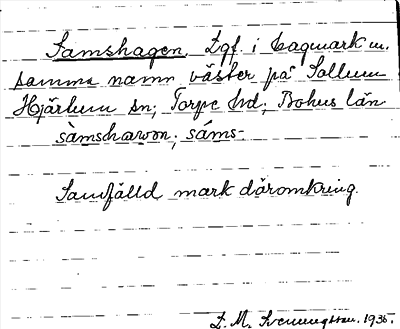 Samshagen. Lgf. i hagmark m.
samma namn väster på Sollum
Hjärtum sn; Torpe hd; Bohus län
sàmshawən; sáms-
Samfälld mark däromkring.
D. M. Svenungsson. 1935.